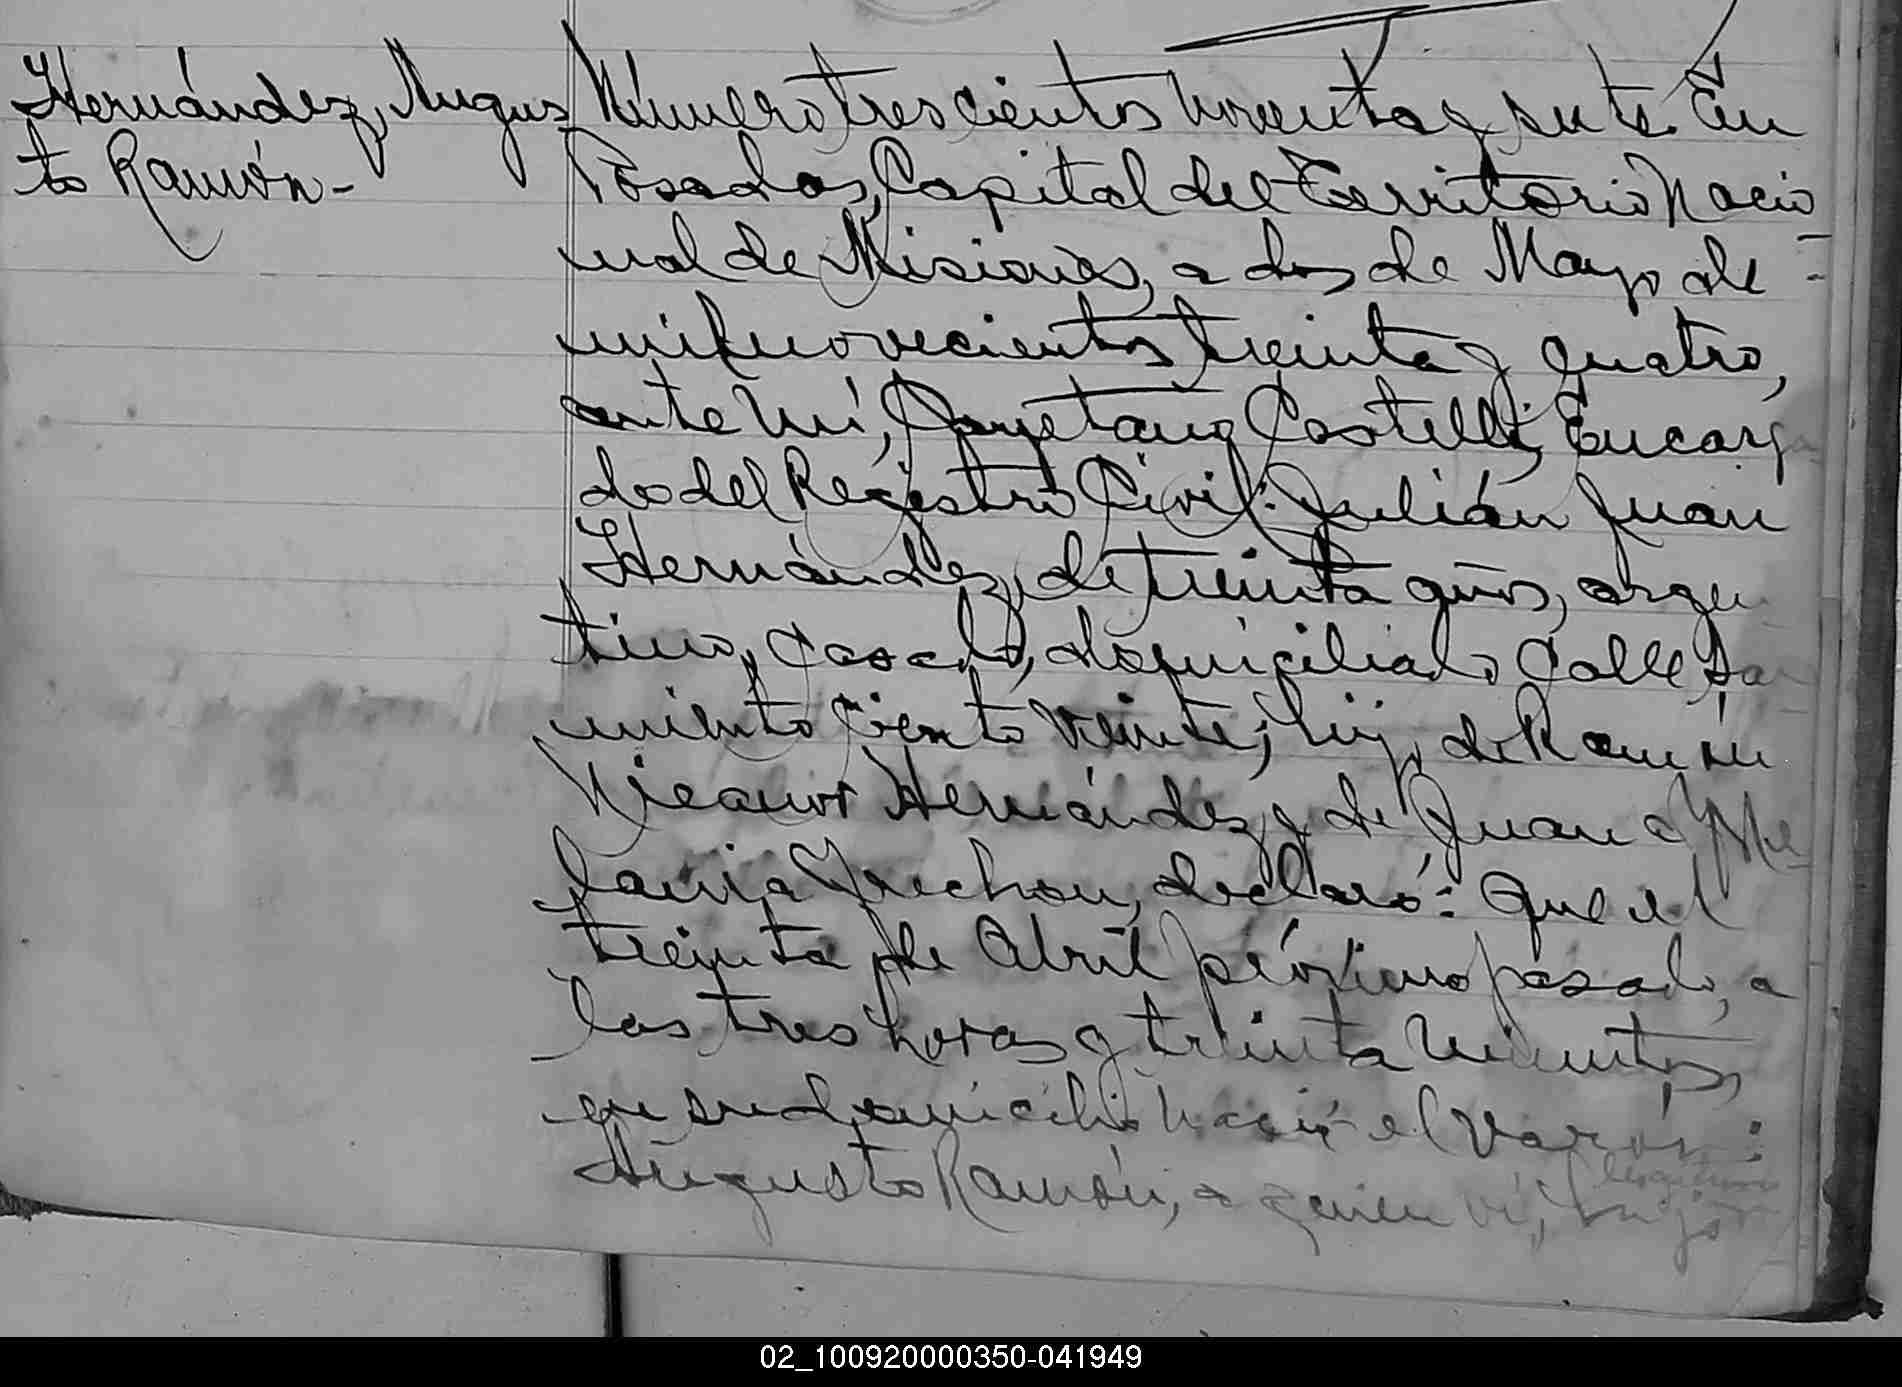 Hernández, Augus
to Ramón-
Número trescientos noventa y siete. En
Posadas, Capital del Territorio Nacio
nal de Misiones, a dos de Mayo de
mil novecientos treinta y cuatro,
ante mí, Cayetano Castelli, Encarga
do del Registro Civil: Julián Juan
Hernández, de treinta años, argen
tino, casado, domiciliado Calle Sar
miento ciento veinte; hijo de Ramón
Nicanor Hernández y de Juana Me
lania Frechou, declaró: Que el
treinta de Abril próximo pasado, a
las tres horas y treinta minutos,
en su domicilio nació el varón:
Augusto Ramón, a quien vi, hijo
legítimo
02_100920000350-041949